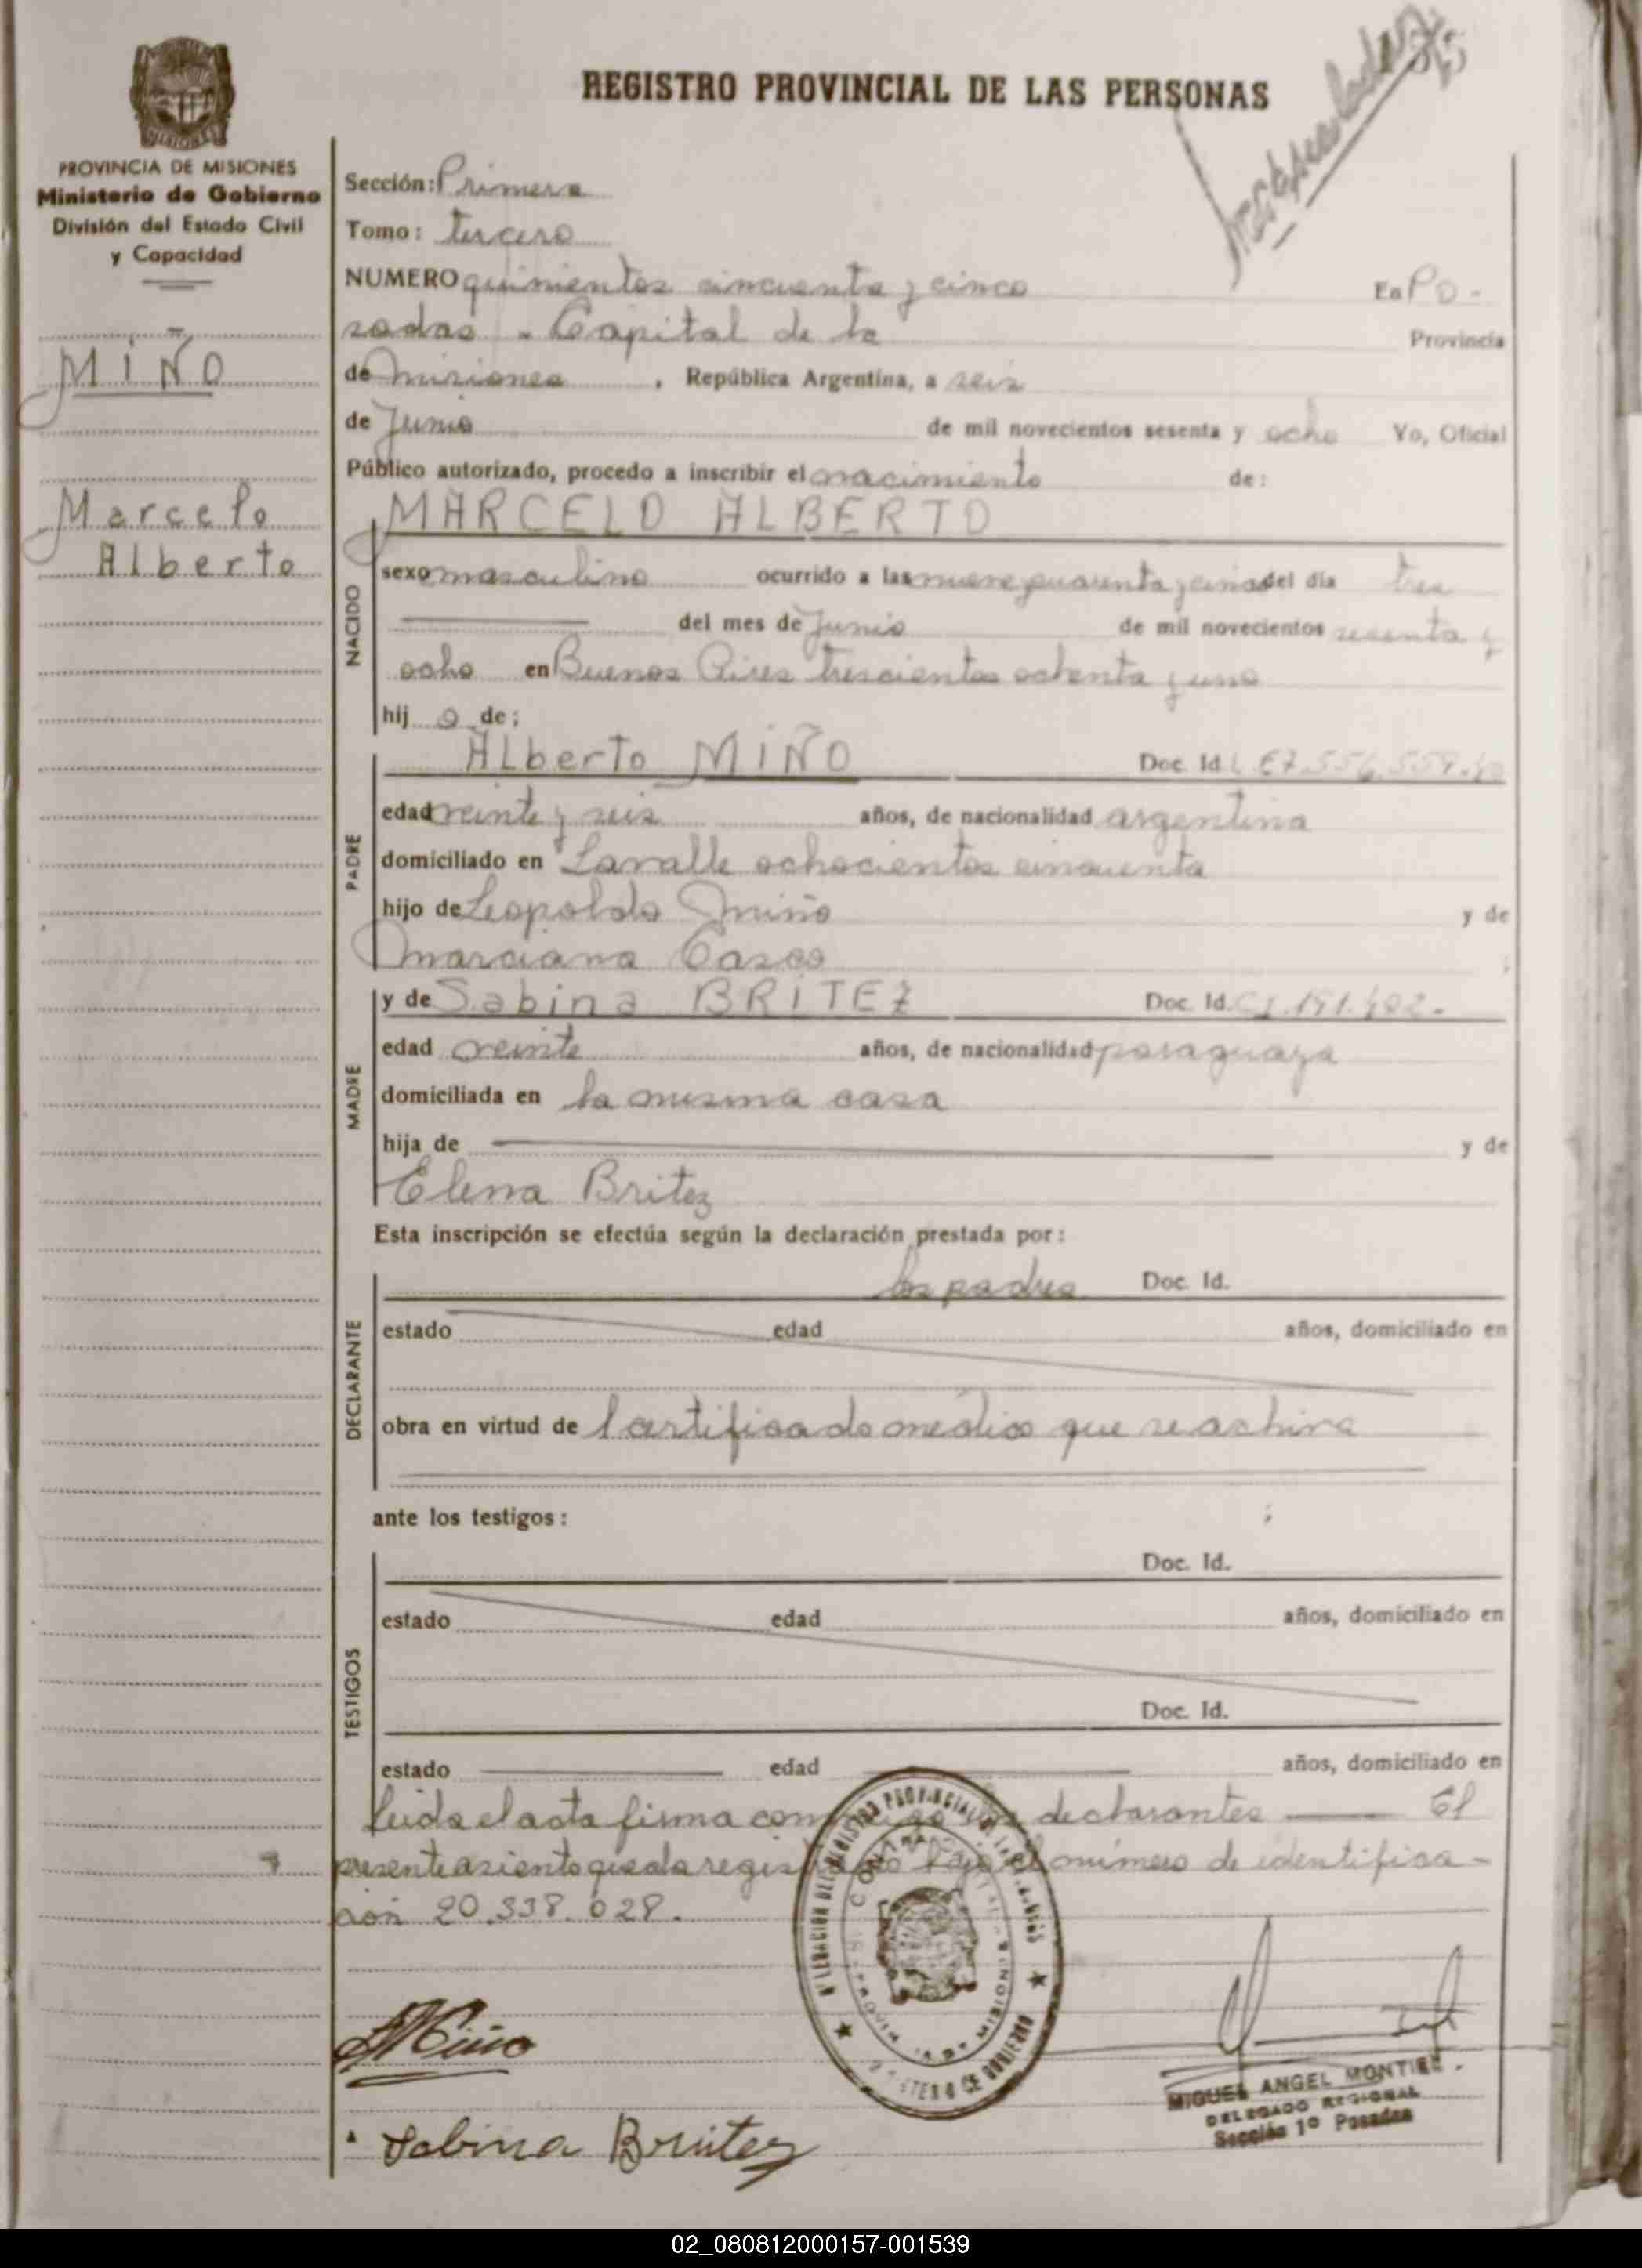 REGISTRO PROVINCIAL DE LAS PERSONAS
PROVINCIA DE MISIONES
Ministerio de Gobierno
División del Estado Civil
y Capacidad
MIÑO
Marcelo
Alberto
Sección: Primera
Tomo: tercero
NUMERO quinientos cincuenta y cinco En Po-
sadas - Capital de la Provincia
de Misiones, República Argentina, a seis
de Junio de mil novecientos sesenta y ocho Yo, Oficial
Público autorizado, procedo a inscribir el nacimiento de:
MARCELO ALBERTO
NACIDO
sexo masculino ocurrido a las nueve cuarenta y cinco del día tres
del mes de Junio de mil novecientos sesenta y
ocho en Buenos Aires trescientos ochenta y uno
hij o de;
PADRE
Alberto MIÑO Doc. Id.
edad veinte y seis años, de nacionalidad argentina
domiciliado en Lavalle ochocientos cincuenta
hijo de Leopoldo Miño y de
Marciana Casco ;
MADRE
y de Sabina BRITEZ Doc. Id. CI.
edad veinte años, de nacionalidad paraguaya
domiciliada en la misma casa
hija de y de
Elena Britez
Esta inscripción se efectúa según la declaración prestada por:
DECLARANTE
los padres Doc. Id.
estado edad años, domiciliado en
obra en virtud de certificado médico que se archiva
ante los testigos: ;
TESTIGOS
Doc. Id.
estado edad años, domiciliado en
Doc. Id.
estado edad años, domiciliado en
leida el acta firma los declarantes El
presente asiento queda registrado bajo el número de identifica-
ción 20.338.028.
Miño
Sabina Britez
MIGUEL ANGEL MONTIEL
DELEGADO REGIONAL
Sección 1º Posadas
02_080812000157-001539